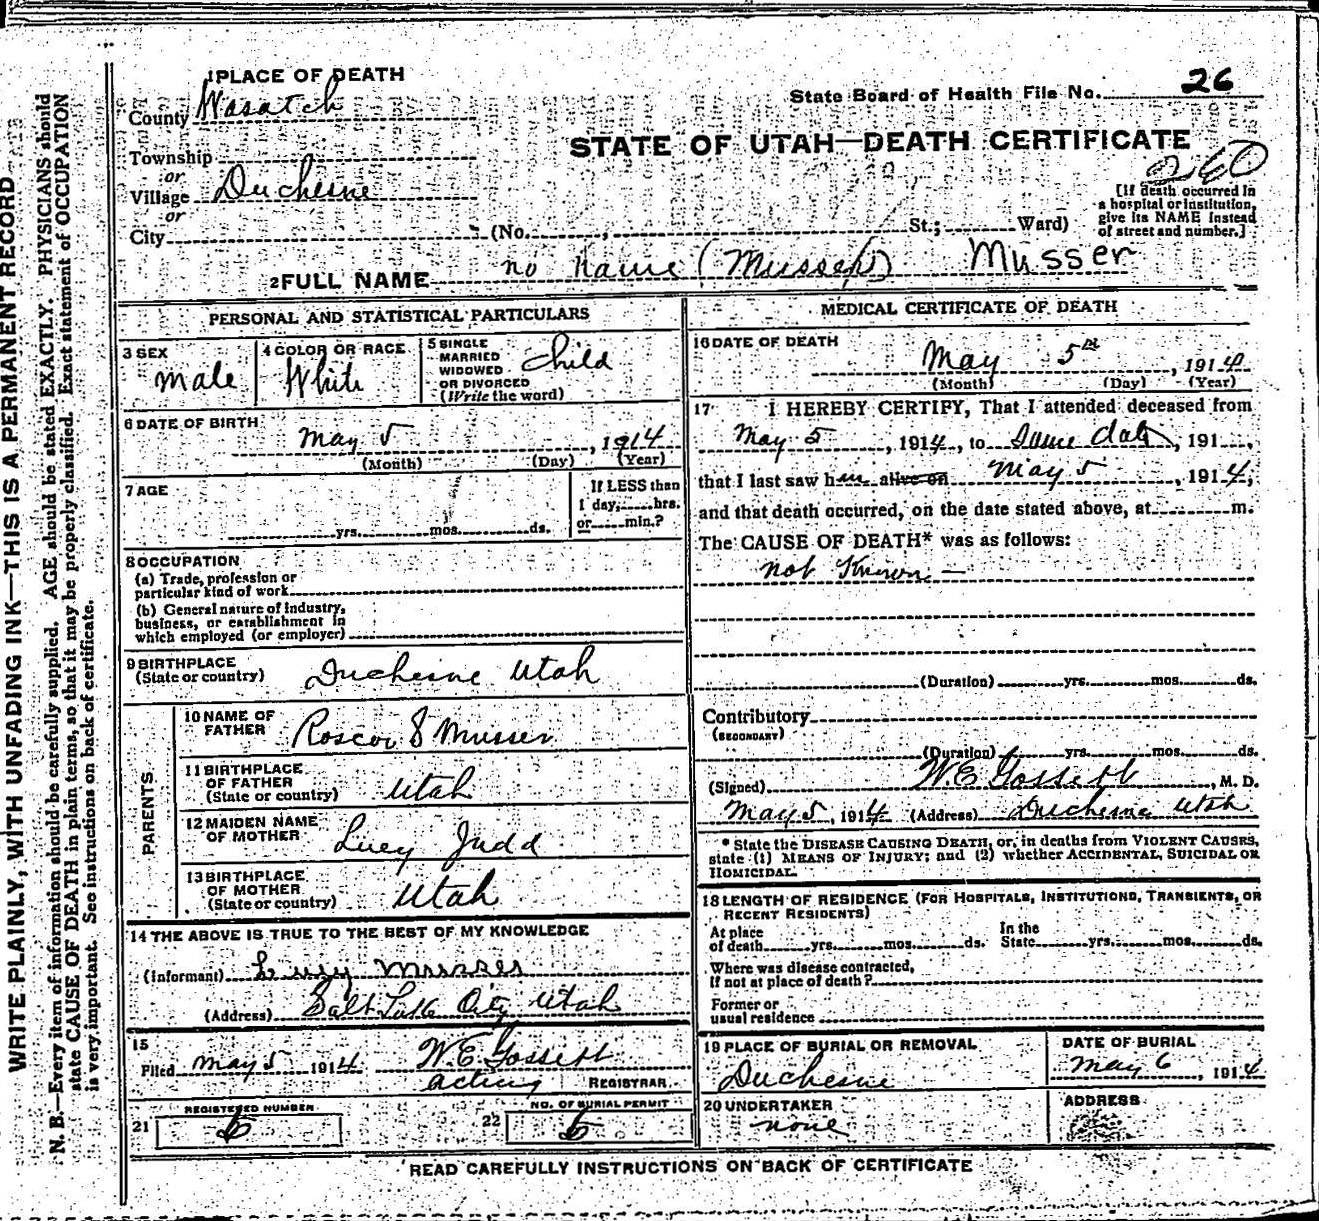 1 PLACE OF DEATH
State Board of Health File No. 26
County Wasatch
STATE OF UTAH—DEATH CERTIFICATE
260
Township
or
Village Duchesne
or
City (No. , St.; Ward)
[If death occurred in
a hospital or institution,
give its NAME instead
of street and number.]
2 FULL NAME no name (Musser) Musser
PERSONAL AND STATISTICAL PARTICULARS
3 SEX
male
4 COLOR OR RACE
White
5 SINGLE
MARRIED
WIDOWED
OR DIVORCED
(Write the word)
Child
6 DATE OF BIRTH
May 5, 1914
(Month) (Day) (Year)
7 AGE
yrs. mos. ds.
If LESS than
1 day, hrs.
or min.?
8 OCCUPATION
(a) Trade, profession or
particular kind of work
(b) General nature of industry,
business, or establishment in
which employed (or employer)
9 BIRTHPLACE
(State or country) Duchesne Utah
PARENTS
10 NAME OF
FATHER Roscoe S Musser
11 BIRTHPLACE
OF FATHER
(State or country) Utah
12 MAIDEN NAME
OF MOTHER Lucy Judd
13 BIRTHPLACE
OF MOTHER
(State or country) Utah
14 THE ABOVE IS TRUE TO THE BEST OF MY KNOWLEDGE
(Informant) Lucy Musser
(Address) Salt Lake City Utah
15
Filed May 5 1914 W. E. Gossett
acting REGISTRAR
REGISTERED NUMBER
21 6
NO. OF BURIAL PERMIT
22 6
MEDICAL CERTIFICATE OF DEATH
16 DATE OF DEATH
May 5th, 1914
(Month) (Day) (Year)
17 I HEREBY CERTIFY, That I attended deceased from
May 5, 1914, to Same date, 191 ,
that I last saw him alive on May 5, 1914,
and that death occurred, on the date stated above, at m.
The CAUSE OF DEATH* was as follows:
not Known —
(Duration) yrs. mos. ds.
Contributory
(SECONDARY)
(Duration) yrs. mos. ds.
(Signed) W. E. Gossett, M. D.
May 5, 1914 (Address) Duchesne Utah
* State the DISEASE CAUSING DEATH, or, in deaths from VIOLENT CAUSES,
state (1) MEANS OF INJURY; and (2) whether ACCIDENTAL, SUICIDAL OR
HOMICIDAL.
18 LENGTH OF RESIDENCE (FOR HOSPITALS, INSTITUTIONS, TRANSIENTS, OR
RECENT RESIDENTS)
At place
of death yrs. mos. ds.
In the
State yrs. mos. ds.
Where was disease contracted,
if not at place of death?
Former or
usual residence
19 PLACE OF BURIAL OR REMOVAL
Duchesne
DATE OF BURIAL
May 6, 1914
20 UNDERTAKER
none
ADDRESS
READ CAREFULLY INSTRUCTIONS ON BACK OF CERTIFICATE
WRITE PLAINLY, WITH UNFADING INK—THIS IS A PERMANENT RECORD
N. B.—Every item of information should be carefully supplied. AGE should be stated EXACTLY. PHYSICIANS should
state CAUSE OF DEATH in plain terms, so that it may be properly classified. Exact statement of OCCUPATION
is very important. See instructions on back of certificate.